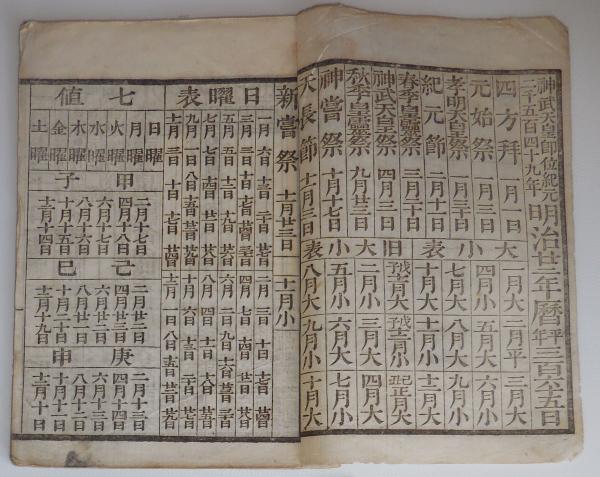 神武天皇即位紀元
二千五百四十九年
明治廿二年曆
平年
三百六五日
四方拜 一月一日
元始祭 一月三日
孝明天皇祭 一月三十日
紀元節 二月十一日
春季皇靈祭 三月二十日
神武天皇祭 四月三日
秋季皇靈祭 九月廿三日
神嘗祭 十月十七日
天長節 十一月三日
大小表
一月大 二月平 三月大
四月小 五月大 六月小
七月大 八月大 九月小
十月大 十一月小 十二月大
旧大小表
二月小 三月大 四月大
五月小 六月大 七月小
八月大 九月小 十月大
新嘗祭 十一月廿三日
十一月小
日曜表
一月 六日 十三日 二十日 廿七日
二月 三日 十日 十七日 廿四日
三月 三日 十日 十七日 廿四日 卅一日
四月 七日 十四日 廿一日 廿八日
五月 五日 十二日 十九日 廿六日
六月 二日 九日 十六日 廿三日 三十日
七月 七日 十四日 廿一日 廿八日
八月 四日 十一日 十八日 廿五日
九月 一日 八日 十五日 廿二日 廿九日
十月 六日 十三日 二十日 廿七日
十一月 三日 十日 十七日 廿四日
十二月 一日 八日 十五日 廿二日 廿九日
七值
日曜
月曜
火曜
水曜
木曜
金曜
土曜
甲子
二月十七日
四月十八日
六月十七日
八月十六日
十月十五日
十二月十四日
己巳
二月廿二日
四月廿三日
六月廿二日
八月廿一日
十月二十日
十二月十九日
庚申
二月十三日
四月十四日
六月十三日
八月十二日
十月十一日
十二月十日